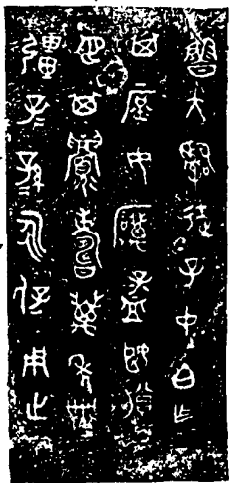 魯大𤔲徒子中白乍
其庶女厲孟姬媵
它其眉壽萬年無
疆子孫永保用之